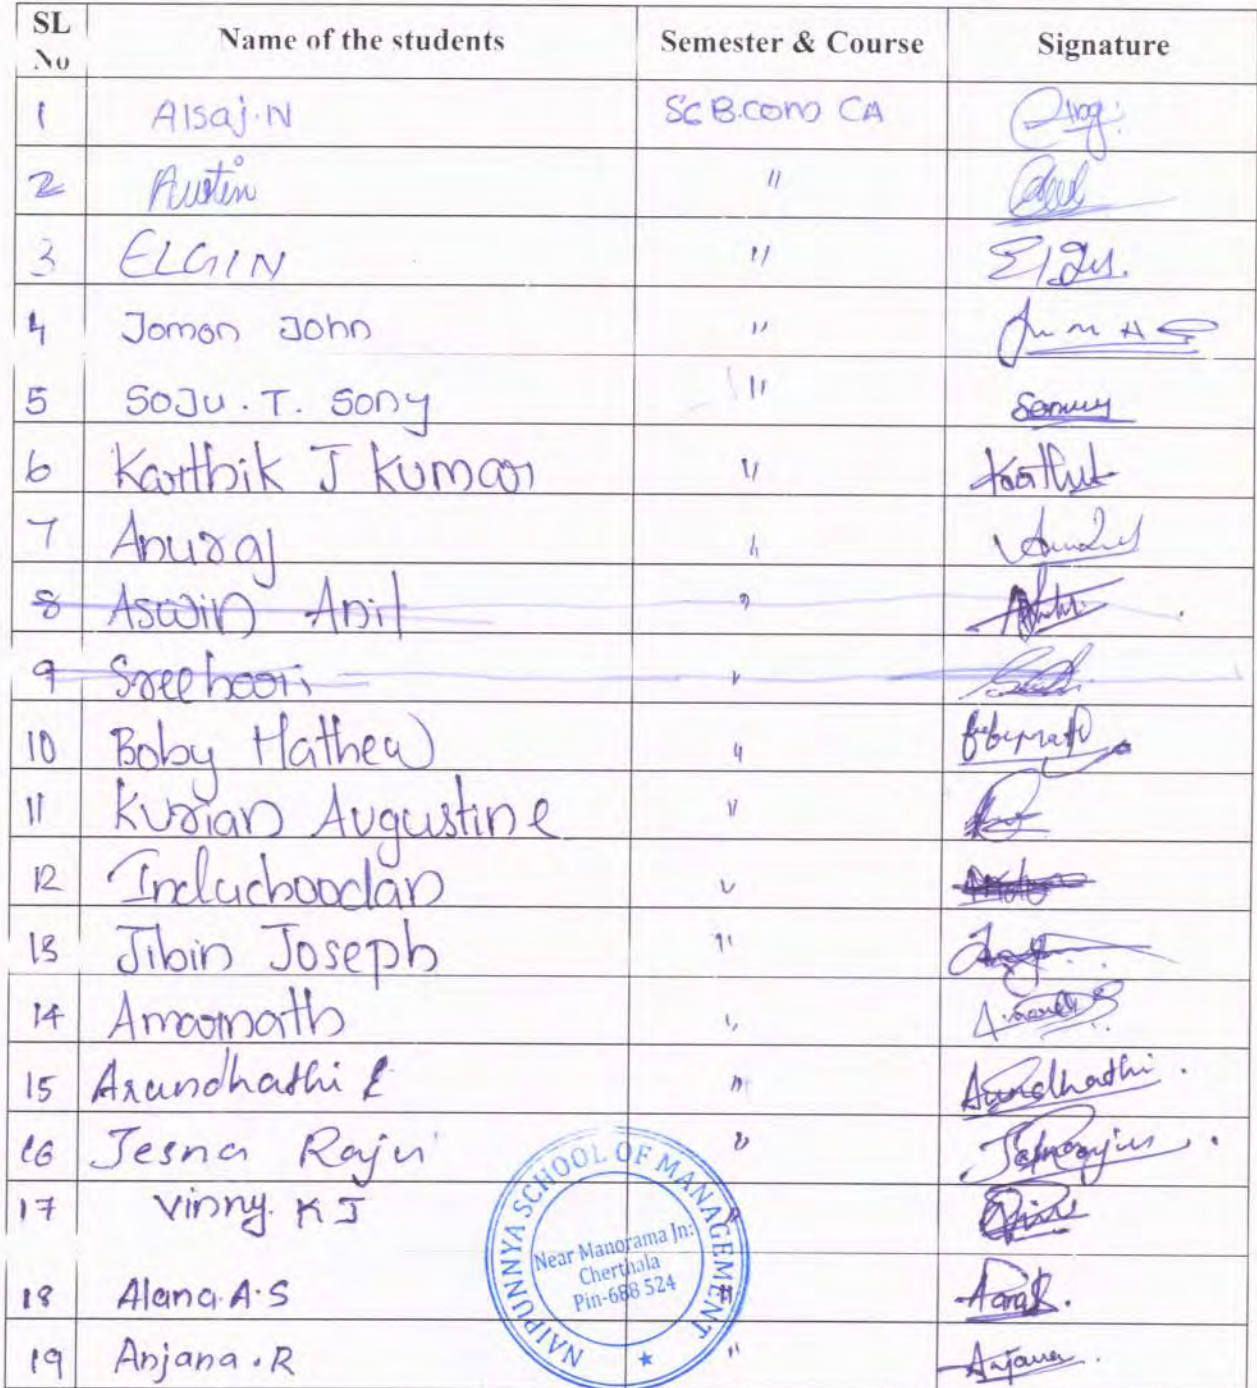 SL No Name of the students Semester & Course Signature
1 Alsaj.N S6 B.com CA
2 Austin "
3 ELGIN "
4 Jomon John "
5 SOJU. T. SONY "
6 Karthik J Kumar "
7 Anuraj "
8 Aswin Anil "
9 Sreehari "
10 Boby Mathew "
11 Kurian Augustine "
12 Induchoodan "
13 Jibin Joseph "
14 Amarnath "
15 Arundhathi " Arundhathi.
16 Jesna Raju "
17 Vinny. K J "
18 Alana.A.S "
19 Anjana.R " Anjana.
NAIPUNNYA SCHOOL OF MANAGEMENT
Near Manorama Jn:
Cherthala
Pin-688 524